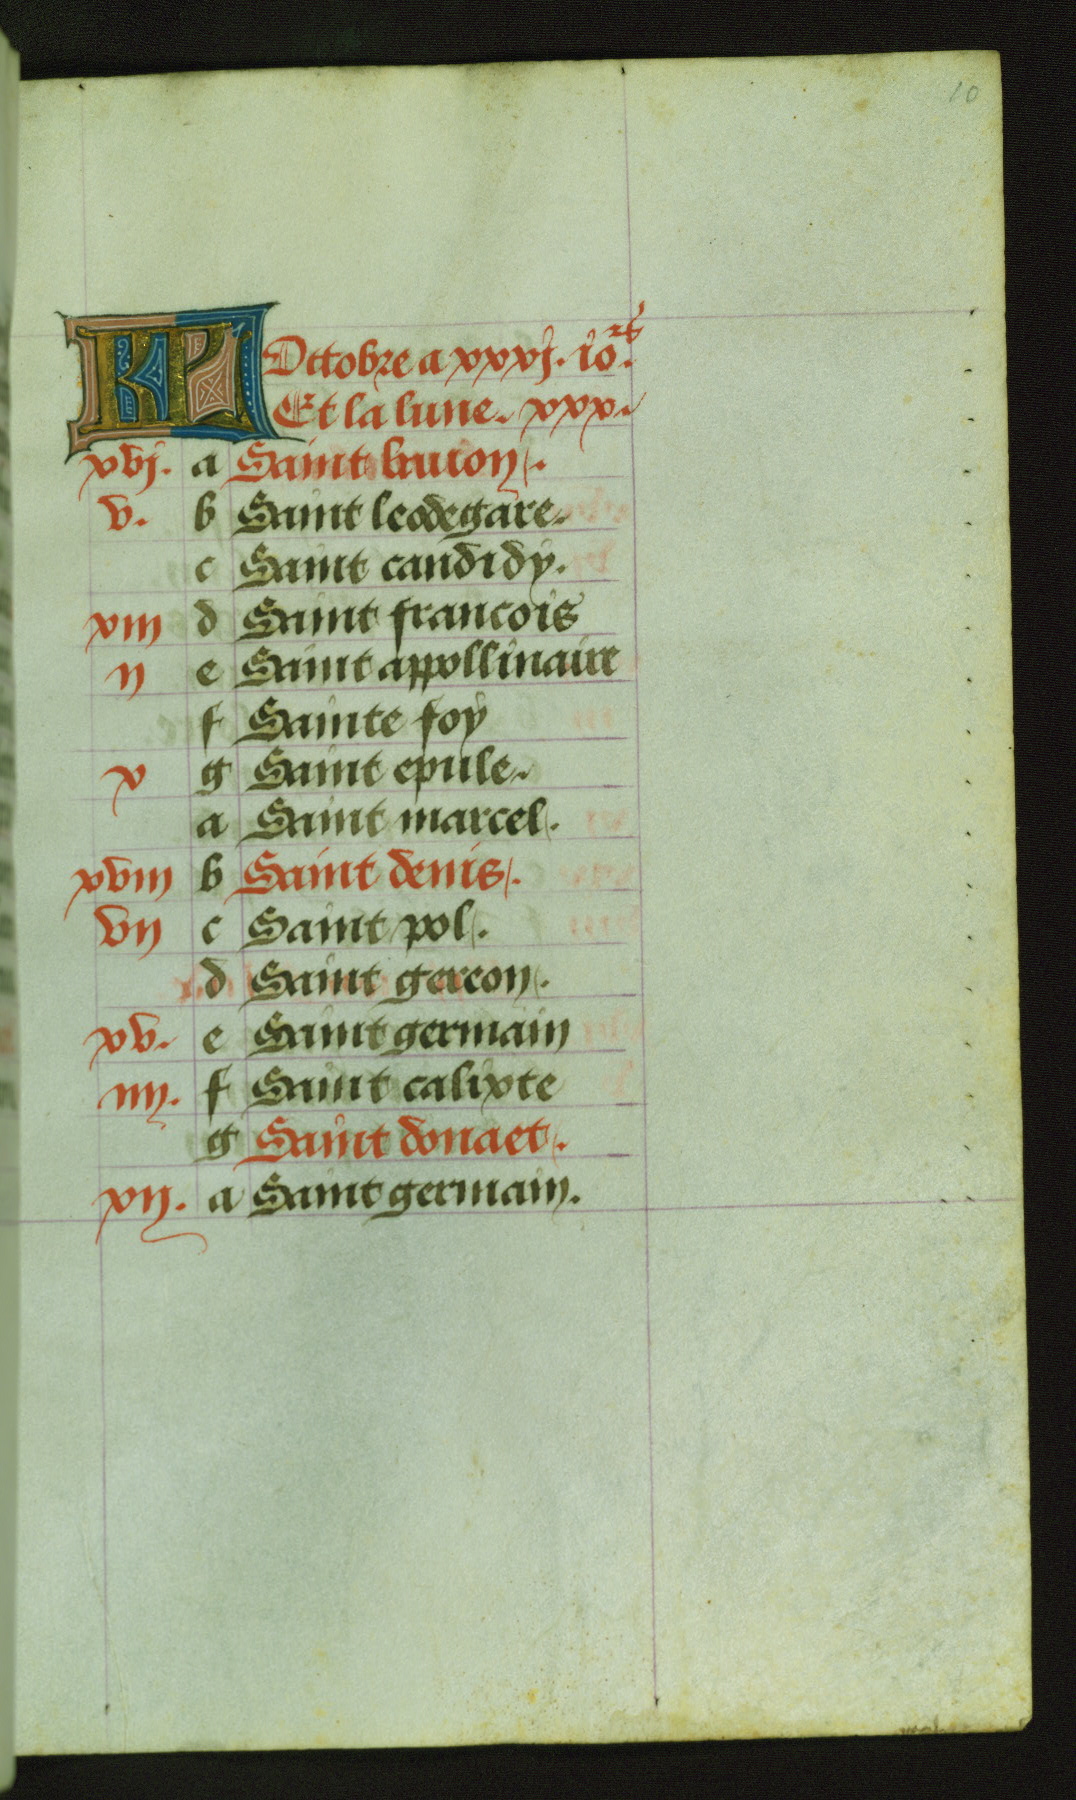 10
KL Octobre a xxxj. io.rs
Et la lune. xxx.
xvj. a Saint bauon.
v. b Saint leodegare.
c Saint candidy.
xiij d Saint francois
ij e Saint appollinaire
f Sainte foy
x g Saint epule.
a Saint marcel.
xviij b Saint denis.
vij c Saint pol.
d Saint gereon.
xv. e Saint germain
iiij. f Saint calixte
g Saint donaet.
xij. a Saint germain.